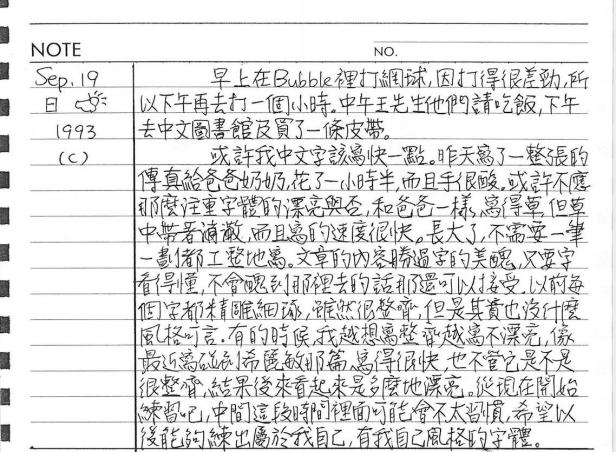 NOTE NO.
Sep. 19 早上在Bubble裡打網球,因打得很差勁,所
日 以下午再去打一個小時。中午王先生他們請吃飯,下午
1993 去中文圖書館及買了一條皮帶。
(C) 或許我中文字該寫快一點。昨天寫了一整張的
傳真給爸爸奶奶,花了一小時半,而且手很酸。或許不應
那麼注重字體的漂亮與否,和爸爸一樣,寫得草,但草
中帶著瀟灑,而且寫的速度很快。長大了,不需要一筆
一劃都工整地寫。文章的內容勝過字的美醜,只要字
看得懂,不會醜到那裡去的話那還可以接受。以前每
個字都精雕細琢,雖然很整齊,但是其實也沒什麼
風格可言。有的時候,我越想寫整齊越寫不漂亮,像
最近寫碰到希薇敏那篇,寫得很快,也不管它是不是
很整齊,結果後來看起來是多麼地漂亮。從現在開始
練習吧,中間這段時間裡面可能會不太習慣,希望以
後能夠練出屬於我自己,有我自己風格的字體。